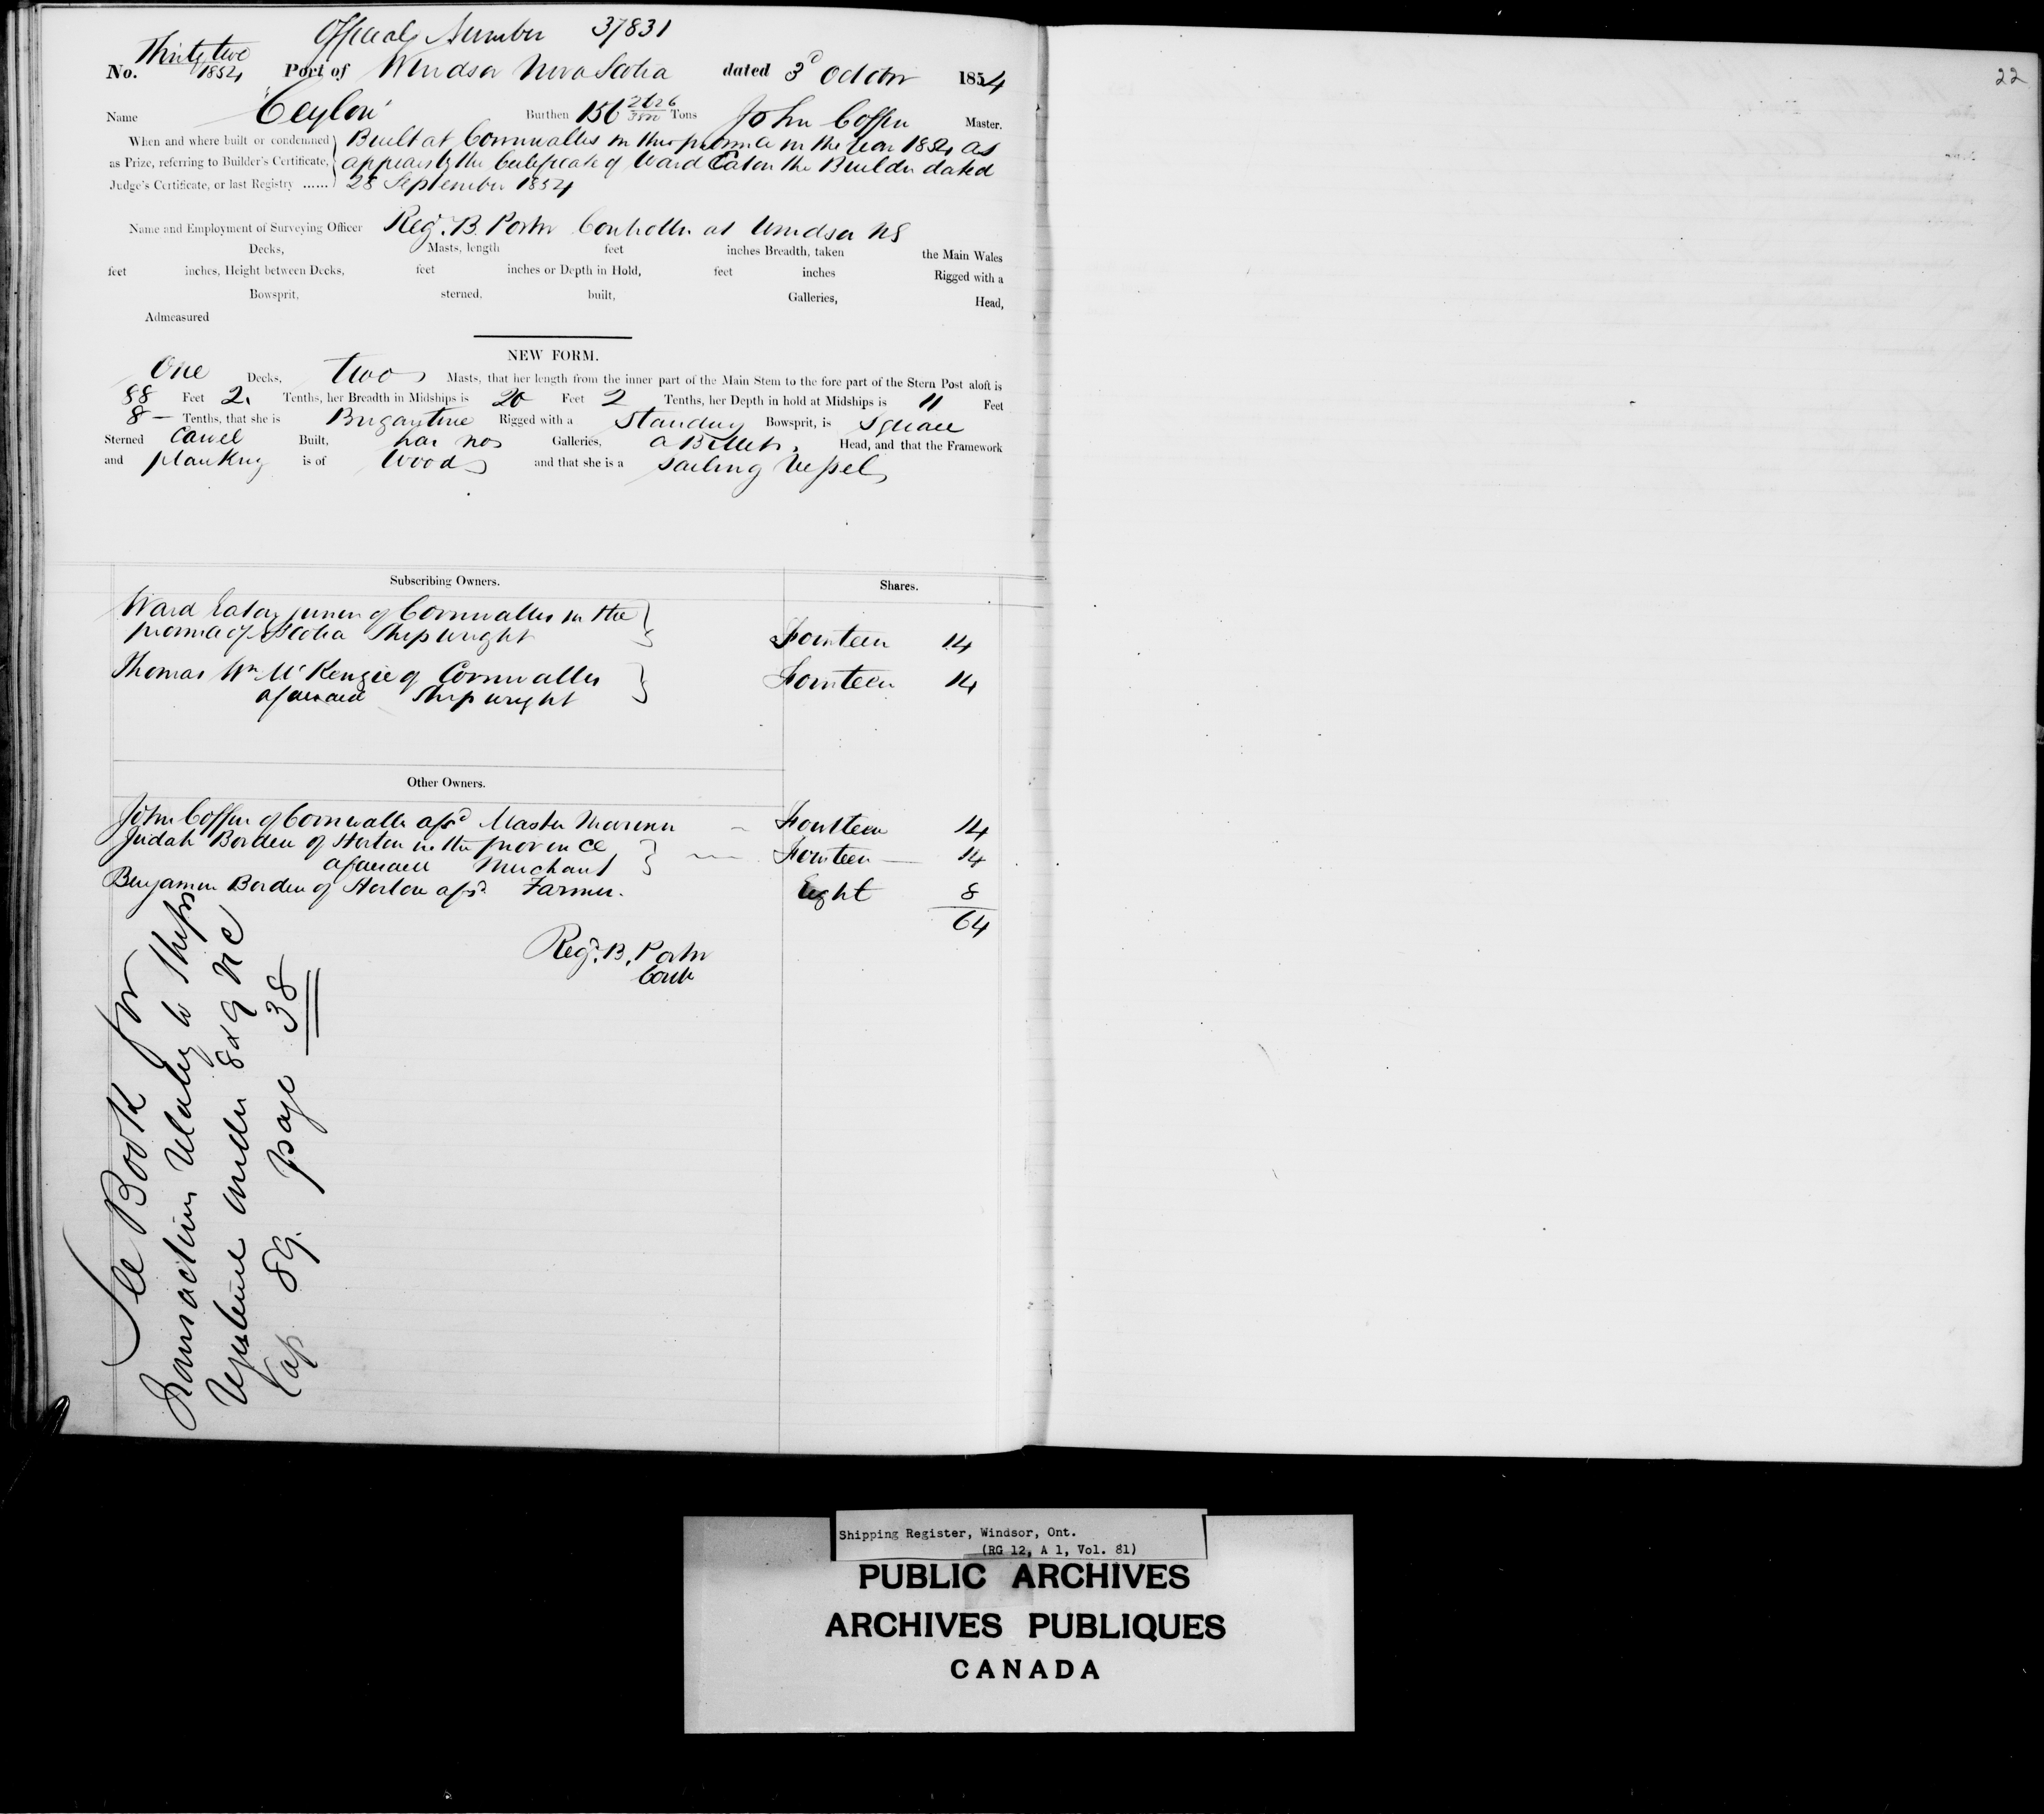 Official Number 37831
No. Thirty two 1854 Port of Windsor Nova Scotia dated 3d October 1854
Name "Ceylon" Burthen 156 2626/3500 Tons John Coffin Master.
When and where built or condemned Built at Cornwallis in this province in the year 1854 as
as Prize, referring to Builder's Certificate, appears by the Certificate of Ward Eaton the Builder dated
Judge's Certificate, or last Registry ...... 28 September 1854
Name and Employment of Surveying Officer Regd. B. Porter Controller at Windsor NS
Decks, Masts, length feet inches Breadth, taken the Main Wales
feet inches, Height between Decks, feet inches or Depth in Hold, feet inches Rigged with a
Bowsprit, sterned, built, Galleries, Head,
Admeasured
NEW FORM.
One Decks, two Masts, that her length from the inner part of the Main Stem to the fore part of the Stern Post aloft is
88 Feet 2. Tenths, her Breadth in Midships is 20 Feet 2 Tenths, her Depth in hold at Midships is 11 Feet
8 — Tenths, that she is Brigantine Rigged with a Standing Bowsprit, is Square
Sterned Carvel Built, has no Galleries, a Billet, Head, and that the Framework
and planking is of Wood and that she is a sailing Vessel
Subscribing Owners. Shares.
Ward Eaton junior of Cornwallis in the
province of Scotia Shipwright Fourteen 14
Thomas Wm McKenzie of Cornwallis Fourteen 14
aforesaid Shipwright
Other Owners.
John Coffin of Cornwallis afsd Master Mariner Fourteen 14
Judah Borden of Horton in the province Fourteen 14
aforesaid Merchant
Benjamin Borden of Horton afsd Farmer. Eight 8
64
Regd. B. Porter
Cont
See Book for
Transactions relating to Ships
Registered under 8 & 9 Vic
Cap 89. page 38
22
Shipping Register, Windsor, Ont.
(RG 12, A 1, Vol. 81)
PUBLIC ARCHIVES
ARCHIVES PUBLIQUES
CANADA